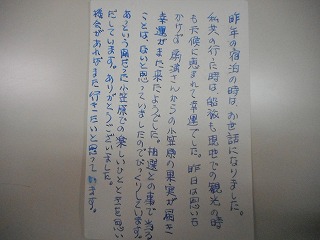 昨年の宿泊の時は、お世話になりました。
私共の行った時は、船旅も現地での観光の時
も天候に恵まれて幸運でした。昨日は思いも
かけず 満さんからの小笠原の果実が届き
幸運がまた来たようでした。抽選との事で当る
ことは、ないと思っていましたのでびっくりしています。
あっという間だった小笠原での楽しいひとときを思い
だしています。ありがとうございました。
機会があればまた行きたいと思って居ます。